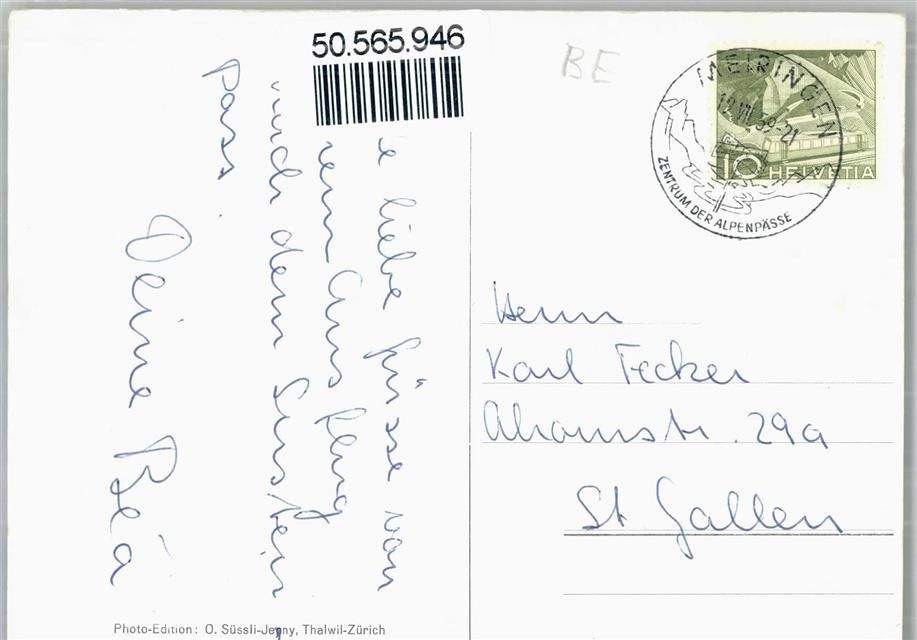 50.565.946
BE
MEIRINGEN
12.VII.59-21
ZENTRUM DER ALPENPÄSSE
10 HELVETIA
liebe Grüsse von
Ausflug
nach dem Susten
Pass.
Deine Béa
Herrn
Karl Fecker
Ahornstr. 29a
St Gallen
Photo-Edition: O. Süssli-Jenny, Thalwil-Zürich